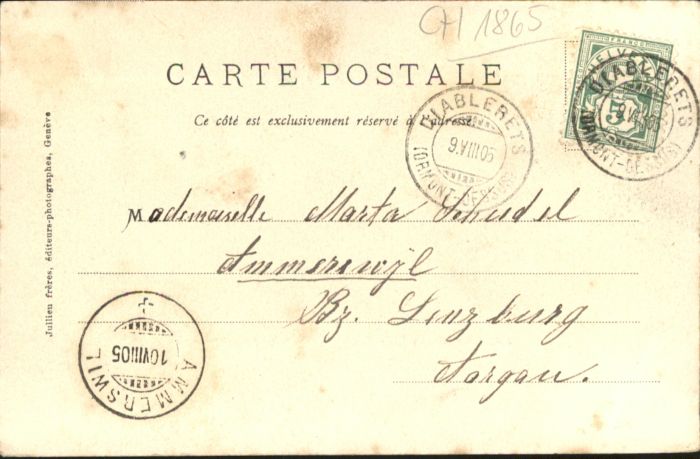 CH 1865
HELVETIA
FRANCO
5
DIABLERETS
CARTE POSTALE
Ce côté est exclusivement réservé à l'adresse.
DIABLERETS
9.VIII.05
(ORMONT-DESSUS)
Mademoiselle Marta Schudel
Ammerswyl
Bz. Lenzburg
Aargau.
AMMERSWIL
10.VIII.05
Jullien frères, éditeurs-photographes, Genève